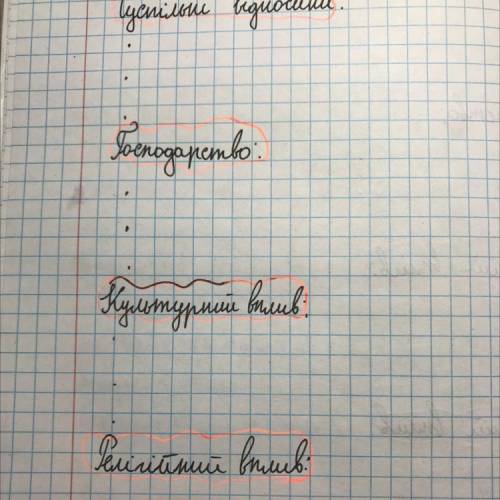 Суспільні відносини:
Господарство:
Культурний вплив:
Релігійний вплив: